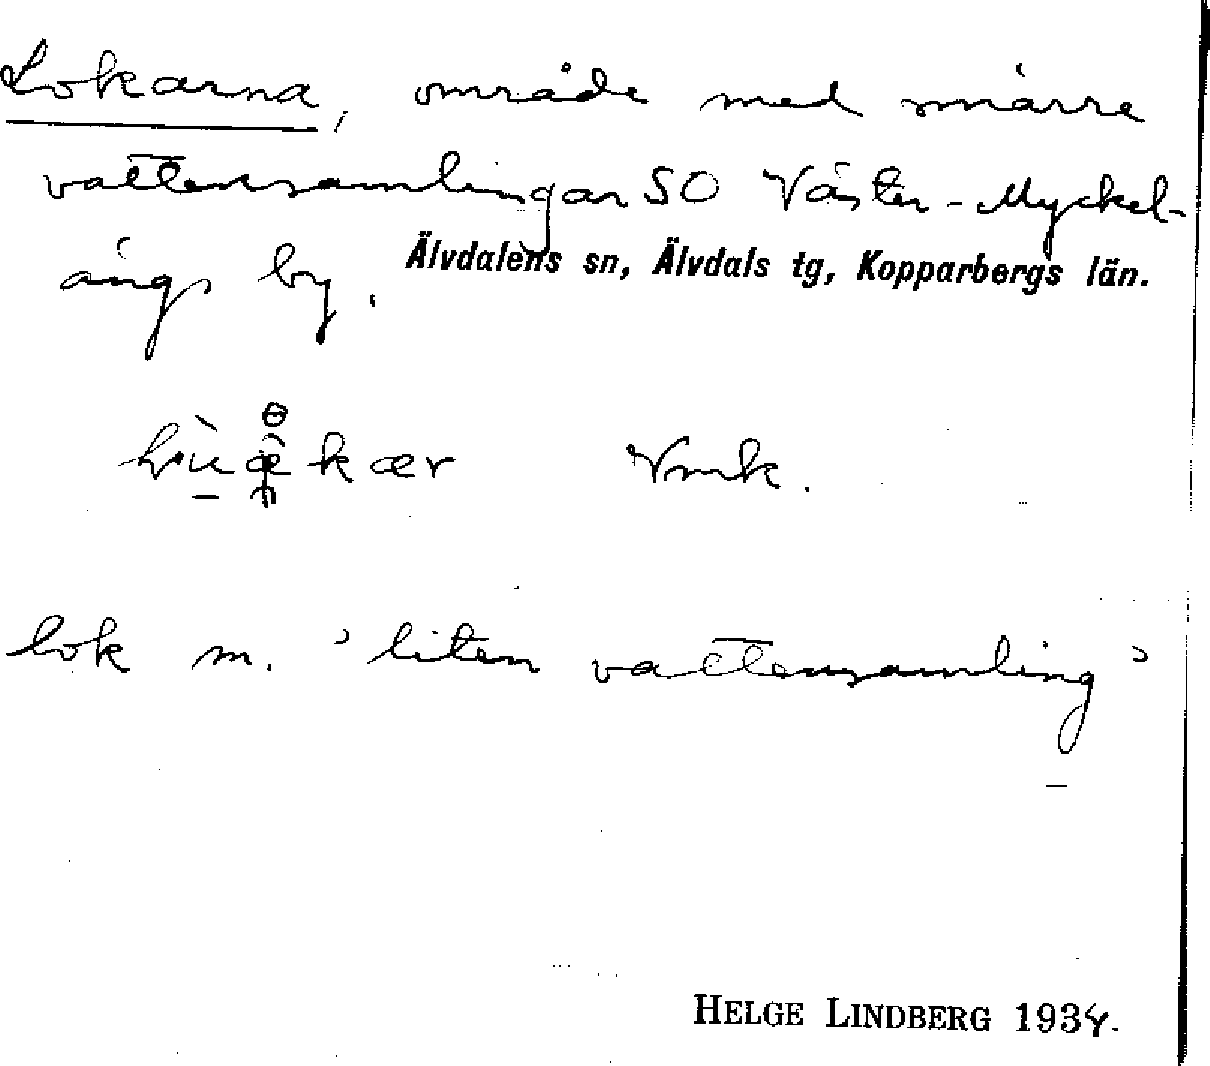 Lokarna, område med smärre
vattensamlingar SO Väster-Myckel-
ängs by. Älvdalens sn, Älvdals tg, Kopparbergs län.
Vmk.
lok m. ʾliten vattensamlingʾ
HELGE LINDBERG 1934.